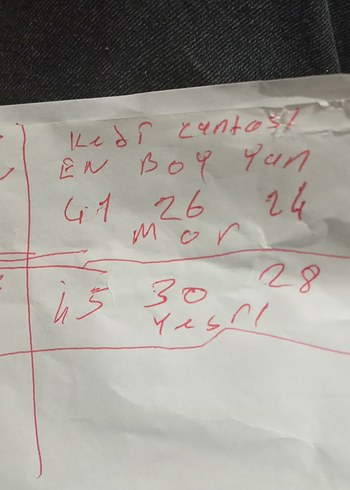 Kedi çantası
EN BOY Yan
41 26 24
Mor
45 30 28
Yeşil